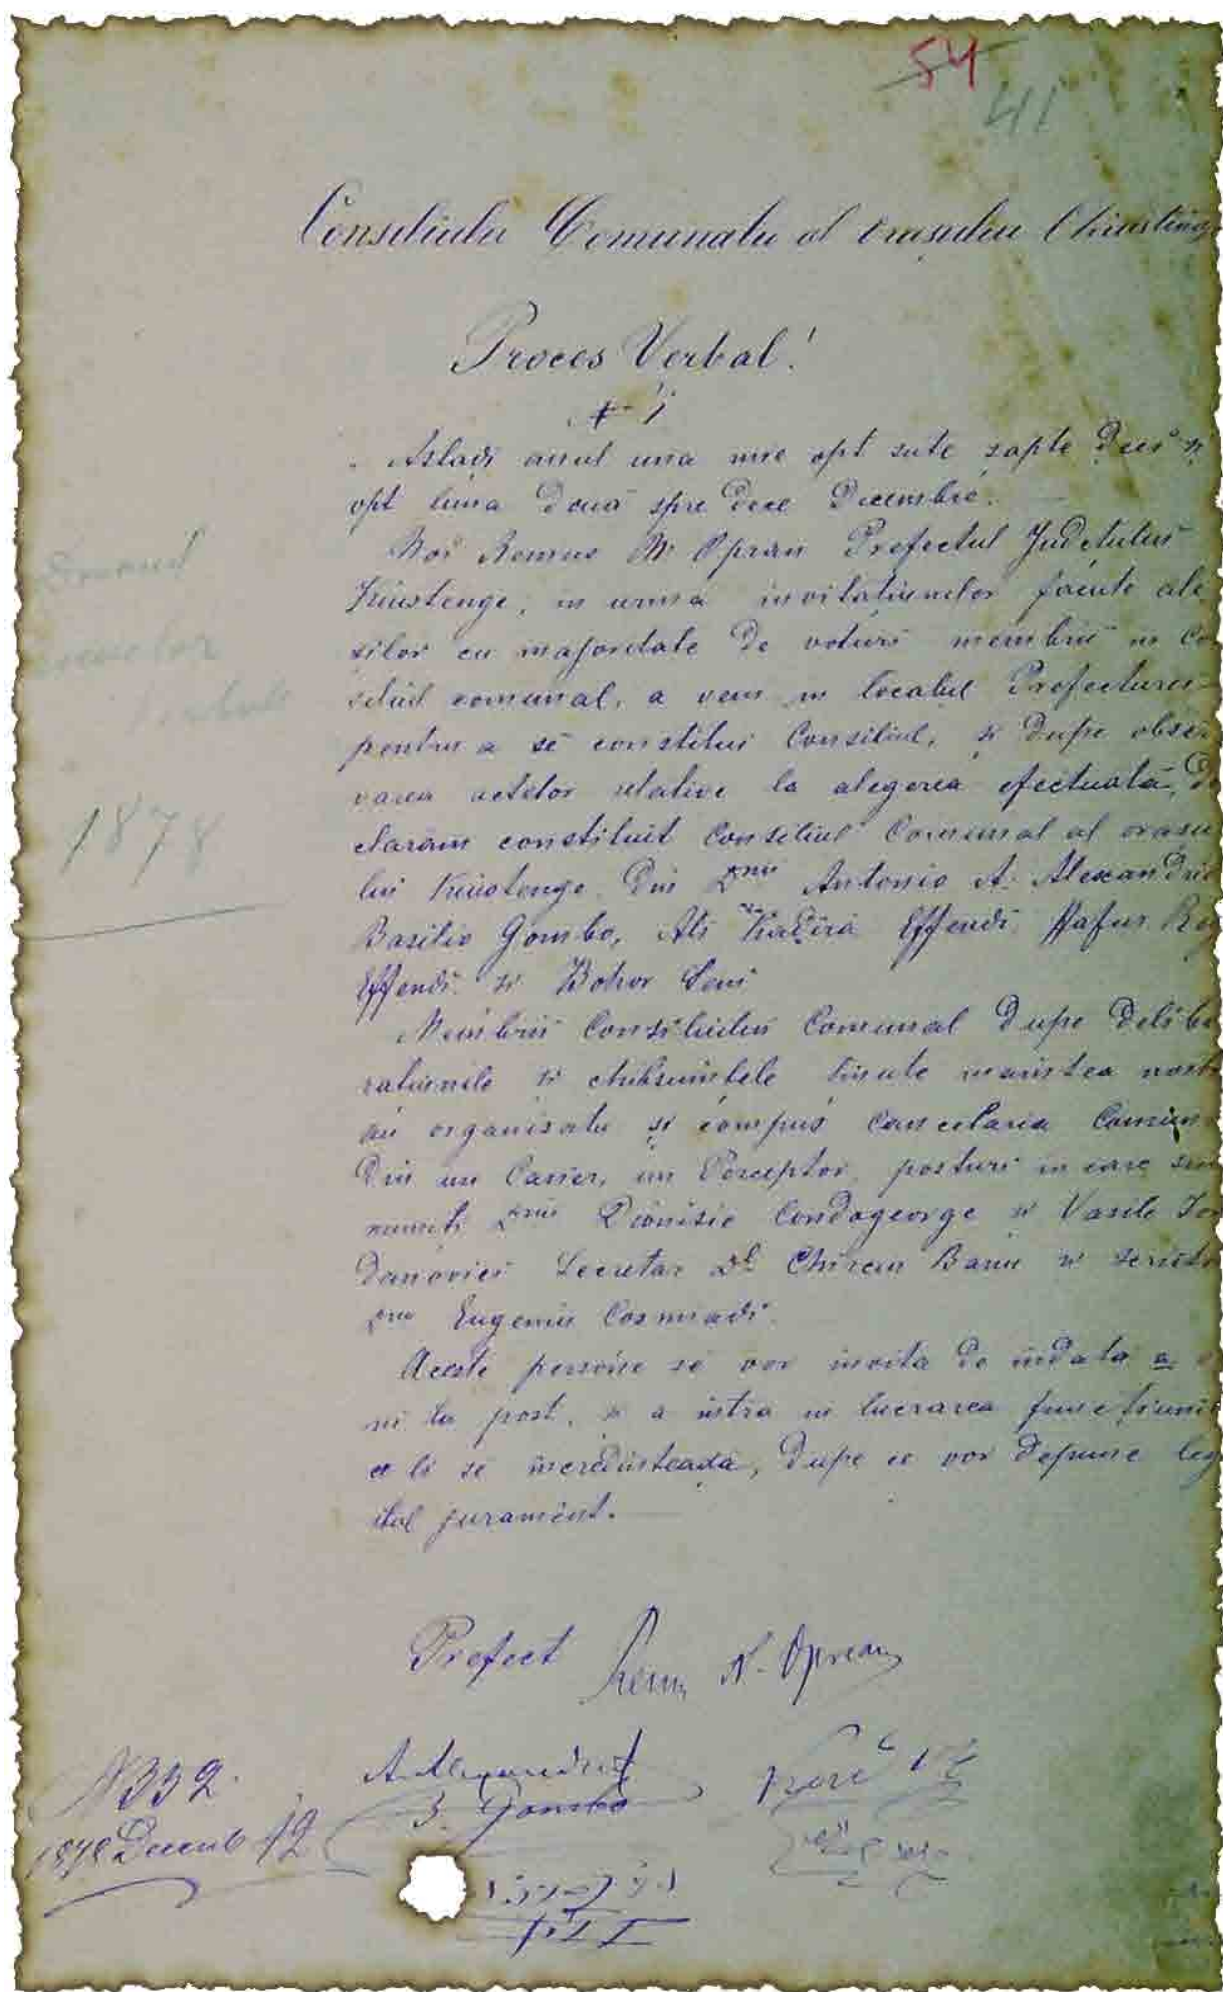 54
41
Consiliulu Comunalu al orașului Chiusteng
Proces Verbal!
№ 1
Astadi anul una mie opt sute șapte deci și
opt luna două spre dece Decembre.
Noi Remus N. Opran Prefectul Județului
Kiustenge, in urma invitațiunelor făcute ale
șilor cu majoritate de voturi membrii in Co
siliul comunal, a veni in localul Prefecturei
pentru a se constitui Consiliul, și dupe obser
varea actelor relative la alegerea efectuată, De
clarăm constituit Consiliul Comunal al orașu
lui Kiustenge din Dnii Antonio A. Alexandri
Basilio Gombo, Ali Kadîra Effendi, Hafus
Effendi și Bohor Levi
Membrii Consiliului Comunal dupe delibe
rațiunile și chibsuințele ținute inaintea nostr
au organisatu și compus cancelaria Comun
din un Casier, un Perceptor, posturi in care sun
numiți Dnii Dionisie Condogeorge și Vasile Ior
danovici Secretar Dl Chircu Banu și scriito
Dnu Eugeniu Cosmiadi.
Aceste persóne se vor invita de indata a
ni la post, și a intra in lucrarea funcțiunii
ce li se incredințează, dupe ce vor depune leg
itul jurament.
Prefect Remus N. Opreanu
A. Alexandri
B. Gombo
№ 332.
1878 Decemb 12
1878